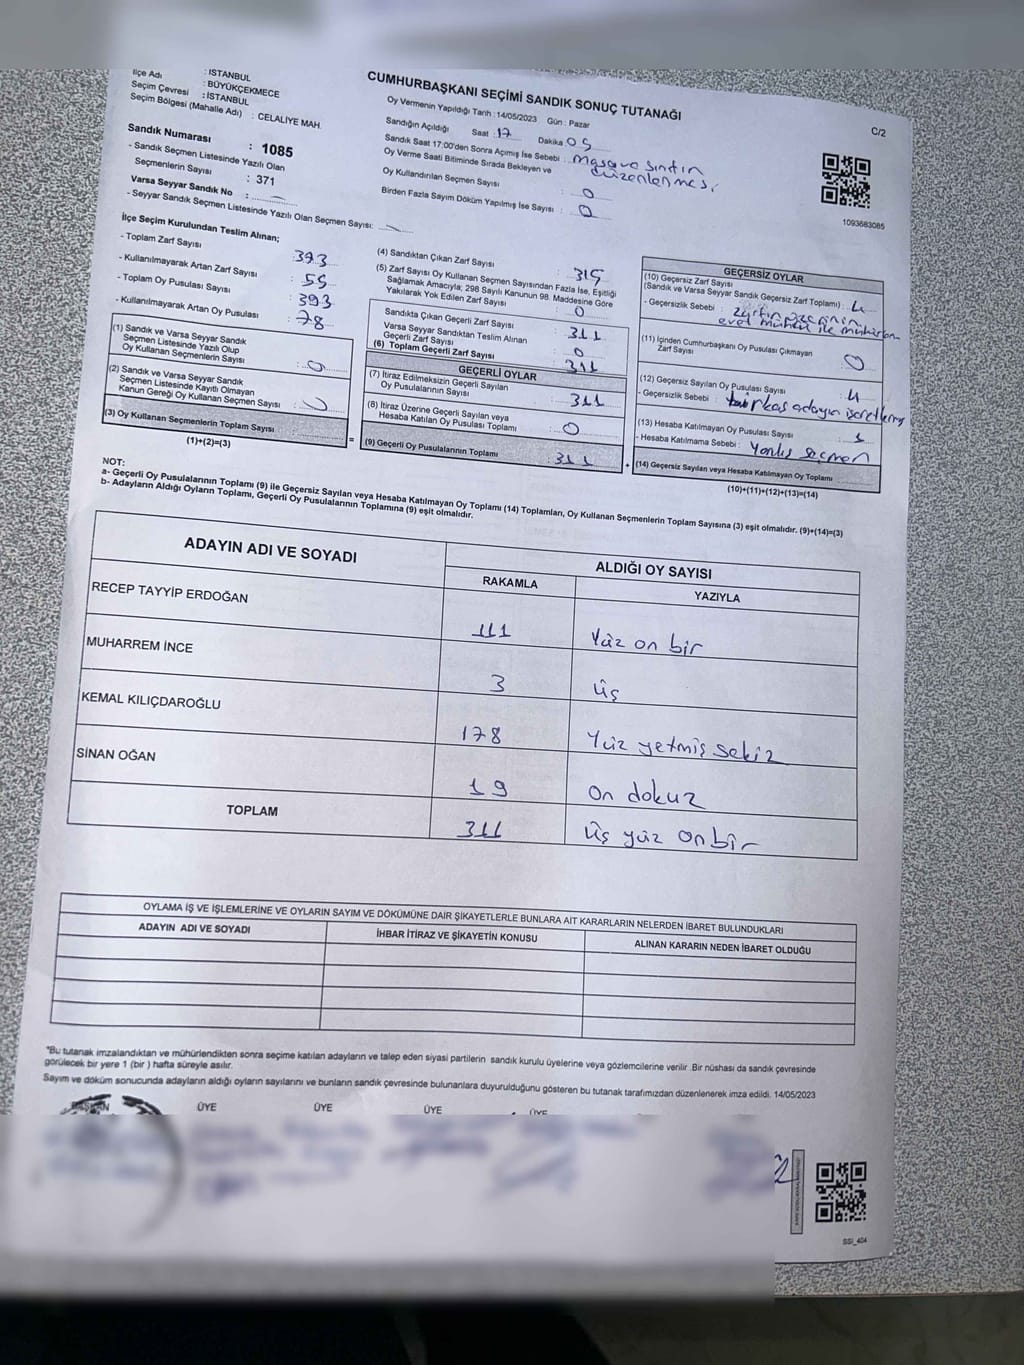 İlçe Adı : İSTANBUL
Seçim Çevresi : BÜYÜKÇEKMECE
Seçim Bölgesi (Mahalle Adı) : İSTANBUL
: CELALİYE MAH.
CUMHURBAŞKANI SEÇİMİ SANDIK SONUÇ TUTANAĞI
C/2
Oy Vermenin Yapıldığı Tarih : 14/05/2023 Gün : Pazar
Sandığın Açıldığı Saat : 17 Dakika 05
Sandık Saat 17:00'den Sonra Açılmış İse Sebebi :
düzenlenmesi
Oy Verme Saati Bitiminde Sırada Bekleyen ve
Oy Kullandırılan Seçmen Sayısı : 0
Birden Fazla Sayım Döküm Yapılmış İse Sayısı : 0
1093683085
Sandık Numarası : 1085
- Sandık Seçmen Listesinde Yazılı Olan
Seçmenlerin Sayısı : 371
Varsa Seyyar Sandık No :
- Seyyar Sandık Seçmen Listesinde Yazılı Olan Seçmen Sayısı:
İlçe Seçim Kurulundan Teslim Alınan;
- Toplam Zarf Sayısı : 393
- Kullanılmayarak Artan Zarf Sayısı : 55
- Toplam Oy Pusulası Sayısı : 393
- Kullanılmayarak Artan Oy Pusulası : 78
(1) Sandık ve Varsa Seyyar Sandık
Seçmen Listesinde Yazılı Olup
Oy Kullanan Seçmenlerin Sayısı : 0
(2) Sandık ve Varsa Seyyar Sandık
Seçmen Listesinde Kayıtlı Olmayan
Kanun Gereği Oy Kullanan Seçmen Sayısı :
(3) Oy Kullanan Seçmenlerin Toplam Sayısı :
(1)+(2)=(3)
=
(4) Sandıktan Çıkan Zarf Sayısı : 315
(5) Zarf Sayısı Oy Kullanan Seçmen Sayısından Fazla İse, Eşitliği
Sağlamak Amacıyla; 298 Sayılı Kanunun 98. Maddesine Göre
Yakılarak Yok Edilen Zarf Sayısı : 0
Sandıkta Çıkan Geçerli Zarf Sayısı : 311
Varsa Seyyar Sandıktan Teslim Alınan
Geçerli Zarf Sayısı : 0
(6) Toplam Geçerli Zarf Sayısı : 311
GEÇERLİ OYLAR
(7) İtiraz Edilmeksizin Geçerli Sayılan
Oy Pusulalarının Sayısı : 311
(8) İtiraz Üzerine Geçerli Sayılan veya
Hesaba Katılan Oy Pusulası Toplamı : 0
(9) Geçerli Oy Pusulalarının Toplamı : 311
+
GEÇERSİZ OYLAR
(10) Geçersiz Zarf Sayısı
(Sandık ve Varsa Seyyar Sandık Geçersiz Zarf Toplamı) : 4
- Geçersizlik Sebebi :
evet mühür ile
(11) İçinden Cumhurbaşkanı Oy Pusulası Çıkmayan
Zarf Sayısı : 0
(12) Geçersiz Sayılan Oy Pusulası Sayısı : 4
- Geçersizlik Sebebi : birkaç adayın
(13) Hesaba Katılmayan Oy Pusulası Sayısı : 1
- Hesaba Katılmama Sebebi : Yanlış seçmen
(14) Geçersiz Sayılan veya Hesaba Katılmayan Oy Toplamı
(10)+(11)+(12)+(13)=(14)
NOT:
a- Geçerli Oy Pusulalarının Toplamı (9) ile Geçersiz Sayılan veya Hesaba Katılmayan Oy Toplamı (14) Toplamları, Oy Kullanan Seçmenlerin Toplam Sayısına (3) eşit olmalıdır. (9)+(14)=(3)
b- Adayların Aldığı Oyların Toplamı, Geçerli Oy Pusulalarının Toplamına (9) eşit olmalıdır.
ADAYIN ADI VE SOYADI
ALDIĞI OY SAYISI
RAKAMLA YAZIYLA
RECEP TAYYİP ERDOĞAN 111 Yüz on bir
MUHARREM İNCE 3 üç
KEMAL KILIÇDAROĞLU 178 Yüz yetmiş sekiz
SİNAN OĞAN 19 on dokuz
TOPLAM 311 üç yüz on bir
OYLAMA İŞ VE İŞLEMLERİNE VE OYLARIN SAYIM VE DÖKÜMÜNE DAİR ŞİKAYETLERLE BUNLARA AİT KARARLARIN NELERDEN İBARET BULUNDUKLARI
ADAYIN ADI VE SOYADI
İHBAR İTİRAZ VE ŞİKAYETİN KONUSU
ALINAN KARARIN NEDEN İBARET OLDUĞU
*Bu tutanak imzalandıktan ve mühürlendikten sonra seçime katılan adayların ve talep eden siyasi partilerin sandık kurulu üyelerine veya gözlemcilerine verilir. Bir nüshası da sandık çevresinde
görülecek bir yere 1 (bir) hafta süreyle asılır.
Sayım ve döküm sonucunda adayların aldığı oyların sayılarını ve bunların sandık çevresinde bulunanlara duyurulduğunu gösteren bu tutanak tarafımızdan düzenlenerek imza edildi. 14/05/2023
BAŞKAN ÜYE ÜYE ÜYE ÜYE
SSİ_404